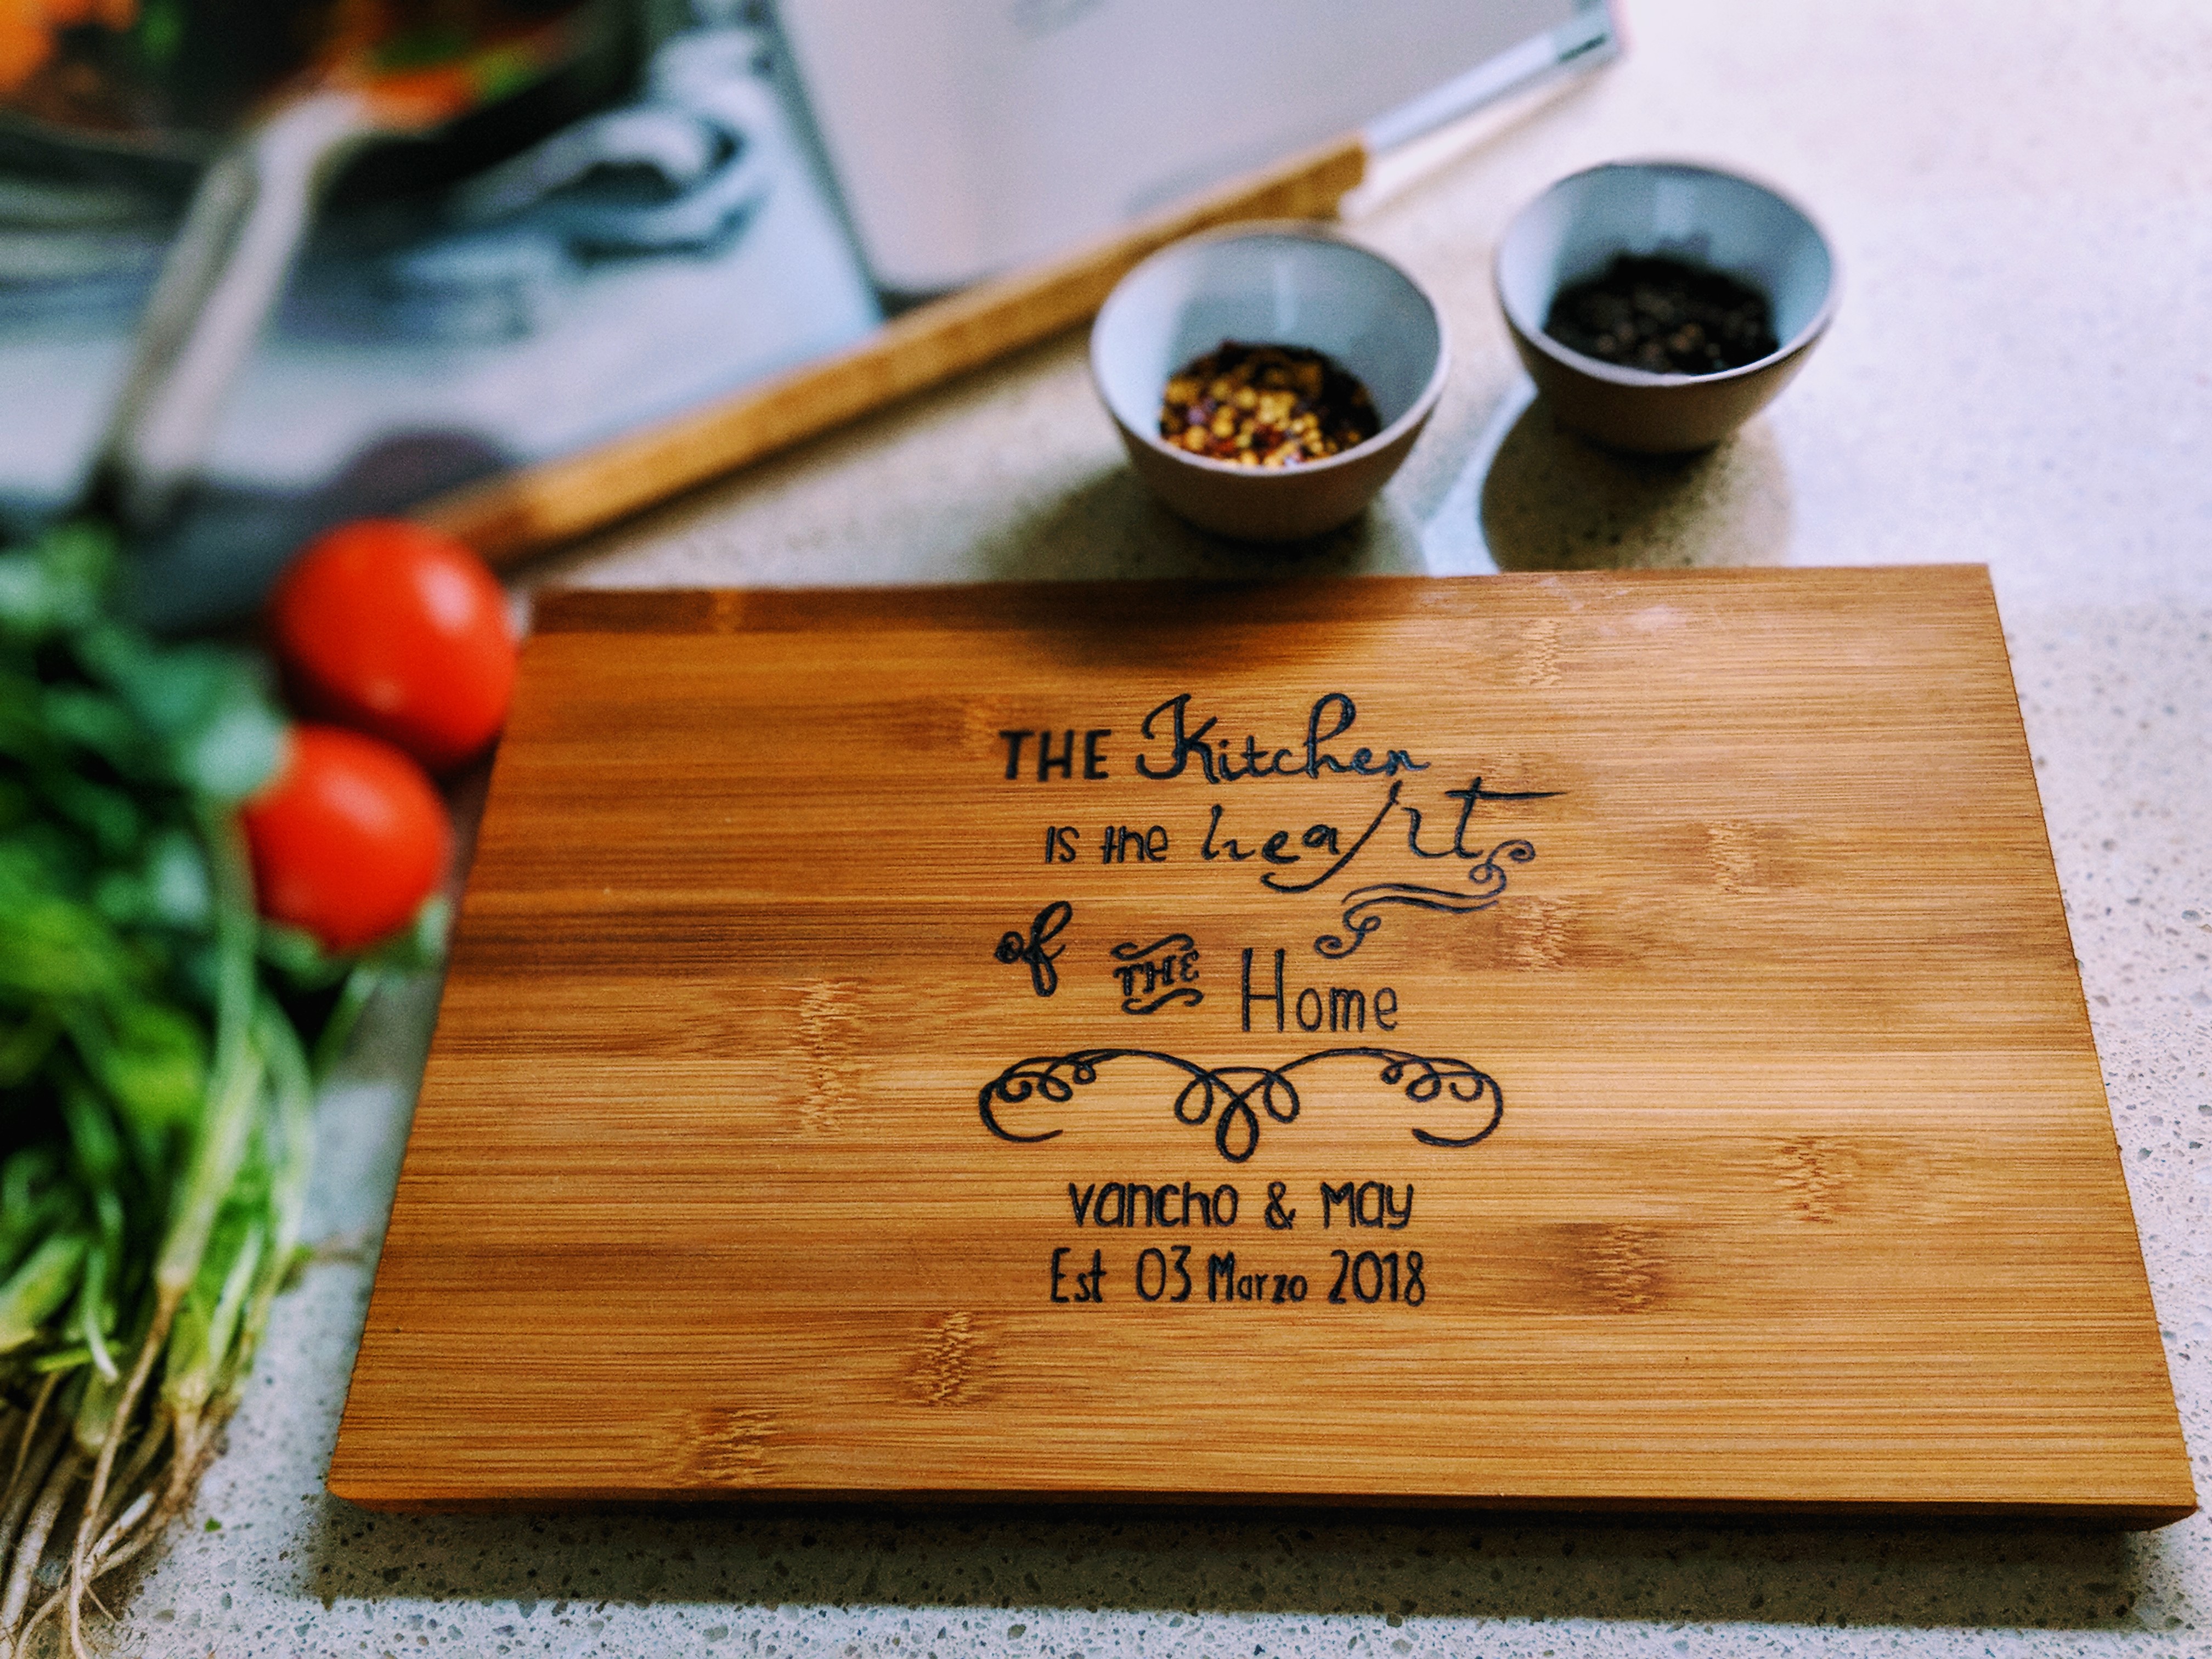 THE Kitchen
is the heart
of THE Home
vancho & May
Est 03 Marzo 2018